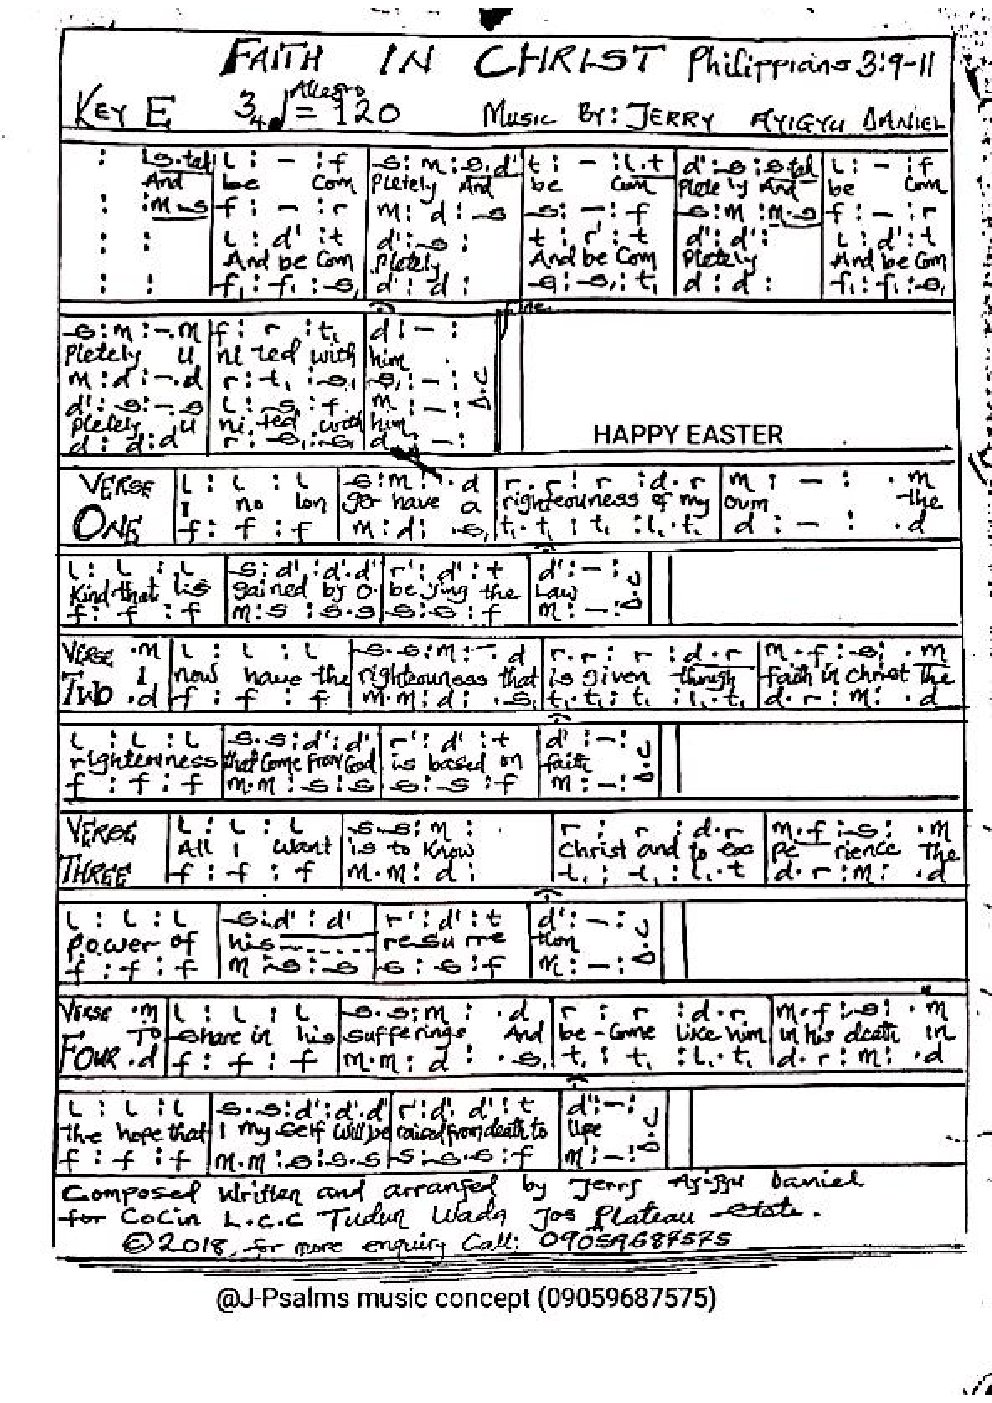 FAITH IN CHRIST Philippians 3:9-11
KEY E 3/4 ♩= 120 Allegro Music BY: JERRY AYIGYU DANIEL
: :s.ta| l : - : f | s : m : s.d' | t : - : l.t | d' : s : s.ta | l : - : f
And be Com pletely And be Com pletely And be Com
: : m.s | f : - : r | m : d : - s | s : - : f | s : m : m.s | f : - : r
: : | l : d' : t | d' : s : | t : r' : t | d' : d' : | l : d' : t
And be Com pletely And be Com pletely And be Com
: : | f₁ : f₁ : s₁ | d : d : | s₁ : s₁ : t₁ | d : d : | f₁ : f₁ : s₁
Fine
s : m : - . m | f : r : t₁ | d : - :
pletely u ni ted with him
m : d : - . d | r : t₁ : s₁ | s₁ : - :
d' : s : - s | l : s : f | m : - : D.C
pletely u ni ted with him
d : d : d | r : s₁ : s₁ | d : - :
HAPPY EASTER
VERSE | l : l : l | s : m : . d | r . r : r : d . r | m : - : . m
I no lon ger have a righteouness of my own the
ONE | f : f : f | m : d : s₁ | t₁ . t₁ : t₁ : l₁ . t₁ | d : - : . d
l : l : l | s : d' : d'.d' | r' : d' : t | d' : - : D.C
Kind that is gained by O. be ying the Law
f : f : f | m : s : s.s | s : s : f | m : - :
VERSE . m | l : l : l | s . s : m : - . d | r . r : r : d . r | m . f : s : . m
I now have the righteouness that is given though faith in Christ the
TWO . d | f : f : f | m . m : d : . s₁ | t₁ . t₁ : t₁ : l₁ . t₁ | d . r : m : . d
l : l : l | s . s : d' : d' | r' : d' : t | d' : - : D.C
righteouness that Come from God is based on faith
f : f : f | m . m : s : s | s : s : f | m : - :
VERSE | l : l : l | s . s : m : | r : r : d . r | m . f : s : . m
All I want is to Know Christ and to exc pe rience The
THREE | f : f : f | m . m : d : | t₁ : t₁ : l₁ . t | d . r : m : . d
l : l : l | s : d' : d' | r' : d' : t | d' : - : D.C
power of his ------- re su rre tion
f : f : f | m : s : s | s : s : f | m : - :
VERSE . m | l : l : l | s . s : m : . d | r : r : d . r | m . f : s : . m
To share in his sufferings And be-Come like him in his death in
FOUR . d | f : f : f | m . m : d : . s₁ | t₁ : t₁ : l₁ . t₁ | d . r : m : . d
l : l : l | s . s : d' : d'.d' | r' . d' : d' : t | d' : - : D.C
the hope that I my self will be raised from death to life
f : f : f | m . m : s : s.s | s . s : s : f | m : - :
Composed written and arranged by Jerry Ayigyu Daniel
for CoCin L.C.C Tudun Wada Jos Plateau state.
©2018, for more enquiry Call: 09059687575
@J-Psalms music concept (09059687575)